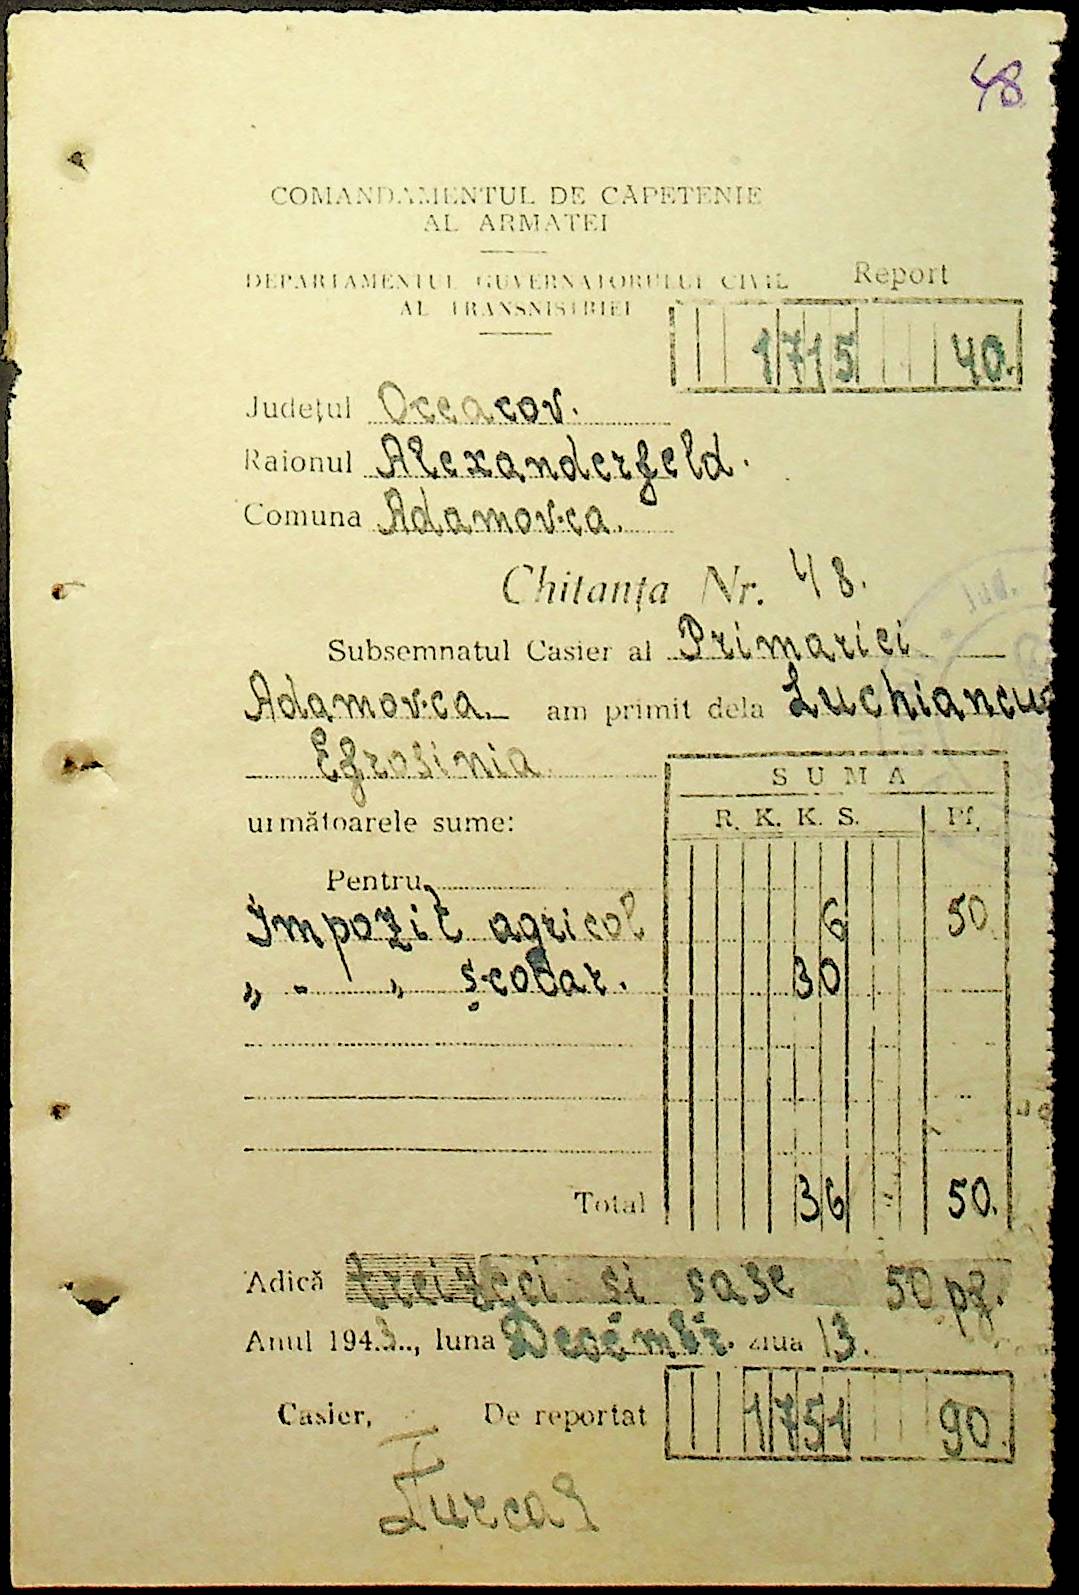 48
COMANDAMENTUL DE CĂPETENIE
AL ARMATEI
DEPARTAMENTUL GUVERNATORULUI CIVIL
AL TRANSNISTRIEI
Report
1715 40.
Județul Oceacov.
Raionul Alexanderfeld.
Comuna Adamovca.
Chitanța Nr. 48.
Jud.
Subsemnatul Casier al Primariei
Adamovca. am primit dela Luchiancuc
Efrosinia
SUMA
următoarele sume:
R. K. K. S. Pf.
Pentru
Impozit agricol 6 50
„ - „ școlar. 30
Total 36 50.
Adică treizeci si sase 50 pf.
Anul 1943.., luna Decembr. ziua 13.
Casier, De reportat 1751 90